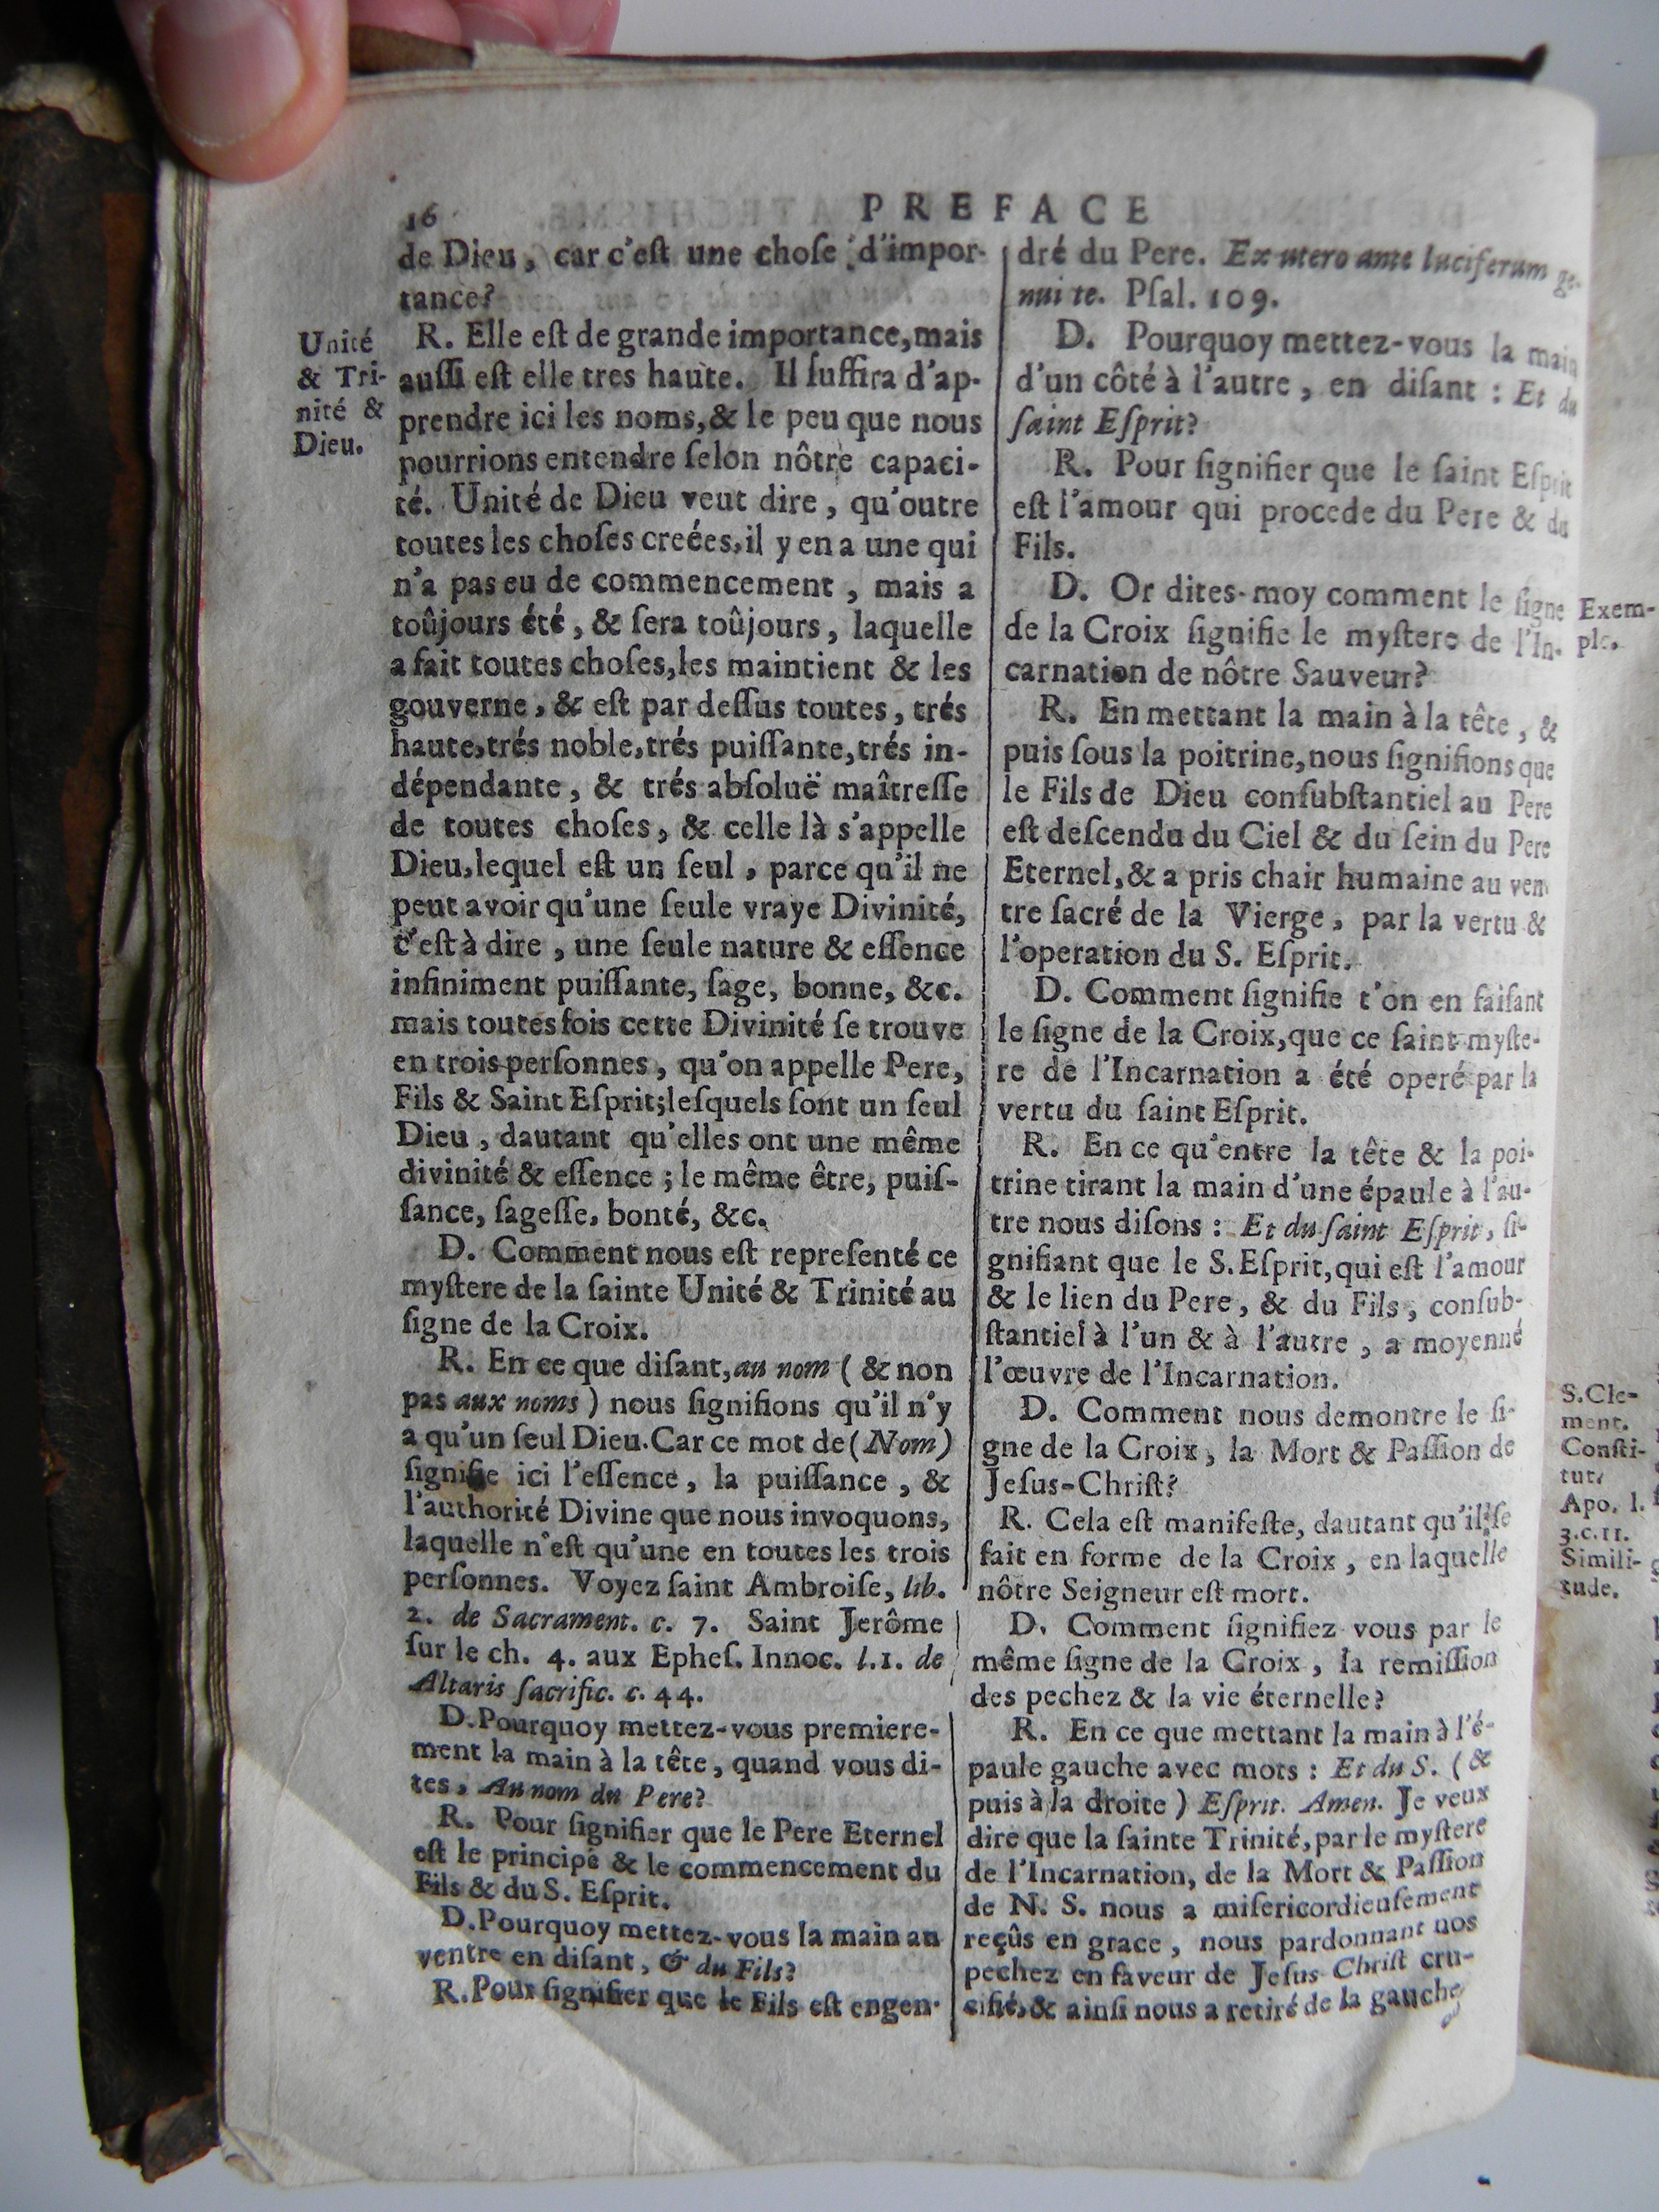 16
PREFACE
de Dieu, car c'eſt une choſe d'impor-
tance?
Unité
& Tri-
nité &
Dieu.
R. Elle eſt de grande importance, mais
auſſi eſt elle tres haute. Il ſuffira d'ap-
prendre ici les noms, & le peu que nous
pourrions entendre ſelon nôtre capaci-
té. Unité de Dieu veut dire, qu'outre
toutes les choſes creées, il y en a une qui
n'a pas eu de commencement, mais a
toûjours été, & ſera toûjours, laquelle
a fait toutes choſes, les maintient & les
gouverne, & eſt par deſſus toutes, trés
haute, trés noble, trés puiſſante, trés in-
dépendante, & trés abſoluë maîtreſſe
de toutes choſes, & celle là s'appelle
Dieu, lequel eſt un ſeul, parce qu'il ne
peut avoir qu'une ſeule vraye Divinité,
c'eſt à dire, une ſeule nature & eſſence
infiniment puiſſante, ſage, bonne, &c.
mais toutesfois cette Divinité ſe trouve
en trois perſonnes, qu'on appelle Pere,
Fils & Saint Eſprit; leſquels ſont un ſeul
Dieu, dautant qu'elles ont une même
divinité & eſſence; le même être, puiſ-
ſance, ſageſſe, bonté, &c.
D. Comment nous eſt repreſenté ce
myſtere de la ſainte Unité & Trinité au
ſigne de la Croix.
R. En ce que diſant, au nom (& non
pas aux noms) nous ſignifions qu'il n'y
a qu'un ſeul Dieu. Car ce mot de (Nom)
ſignifie ici l'eſſence, la puiſſance, &
l'authorité Divine que nous invoquons,
laquelle n'eſt qu'une en toutes les trois
perſonnes. Voyez ſaint Ambroiſe, lib.
2. de Sacrament. c. 7. Saint Jerôme
ſur le ch. 4. aux Epheſ. Innoc. l.1. de
Altaris ſacrific. c. 44.
D. Pourquoy mettez-vous premiere-
ment la main à la tête, quand vous di-
tes, Au nom du Pere?
R. Pour ſignifier que le Pere Eternel
eſt le principe & le commencement du
Fils & du S. Eſprit.
D. Pourquoy mettez-vous la main au
ventre en diſant, & du Fils?
R. Pour ſignifier que le Fils eſt engen-
dré du Pere. Ex utero ante luciferum ge-
nui te. Pſal. 109.
D. Pourquoy mettez-vous la main
d'un côté à l'autre, en diſant : Et du
ſaint Eſprit?
R. Pour ſignifier que le ſaint Eſprit
eſt l'amour qui procede du Pere & du
Fils.
D. Or dites-moy comment le ſigne
de la Croix ſignifie le myſtere de l'In-
carnation de nôtre Sauveur?
Exem-
ple.
R. En mettant la main à la tête, &
puis ſous la poitrine, nous ſignifions que
le Fils de Dieu conſubſtantiel au Pere
eſt deſcendu du Ciel & du ſein du Pere
Eternel, & a pris chair humaine au ven
tre ſacré de la Vierge, par la vertu &
l'operation du S. Eſprit.
D. Comment ſignifie t'on en faiſant
le ſigne de la Croix, que ce ſaint myſte-
re de l'Incarnation a été operé par la
vertu du ſaint Eſprit.
R. En ce qu'entre la tête & la poi-
trine tirant la main d'une épaule à l'au-
tre nous diſons : Et du ſaint Eſprit, ſi-
gnifiant que le S. Eſprit, qui eſt l'amour
& le lien du Pere, & du Fils, conſub-
ſtantiel à l'un & à l'autre, a moyenné
l'œuvre de l'Incarnation.
D. Comment nous demontre le ſi-
gne de la Croix, la Mort & Paſſion de
Jeſus-Chriſt?
R. Cela eſt manifeſte, dautant qu'il ſe
fait en forme de la Croix, en laquelle
nôtre Seigneur eſt mort.
D. Comment ſignifiez vous par le
même ſigne de la Croix, la remiſſion
des pechez & la vie éternelle?
R. En ce que mettant la main à l'é-
paule gauche avec mots : Et du S. (&
puis à la droite) Eſprit. Amen. Je veux
dire que la ſainte Trinité, par le myſtere
de l'Incarnation, de la Mort & Paſſion
de N. S. nous a miſericordieuſement
reçûs en grace, nous pardonnant nos
pechez en faveur de Jeſus Chriſt cru-
cifié, & ainſi nous a retiré de la gauche
S. Cle-
ment.
Conſti-
tut.
Apo. l.
3.c.11.
Simili-
tude.